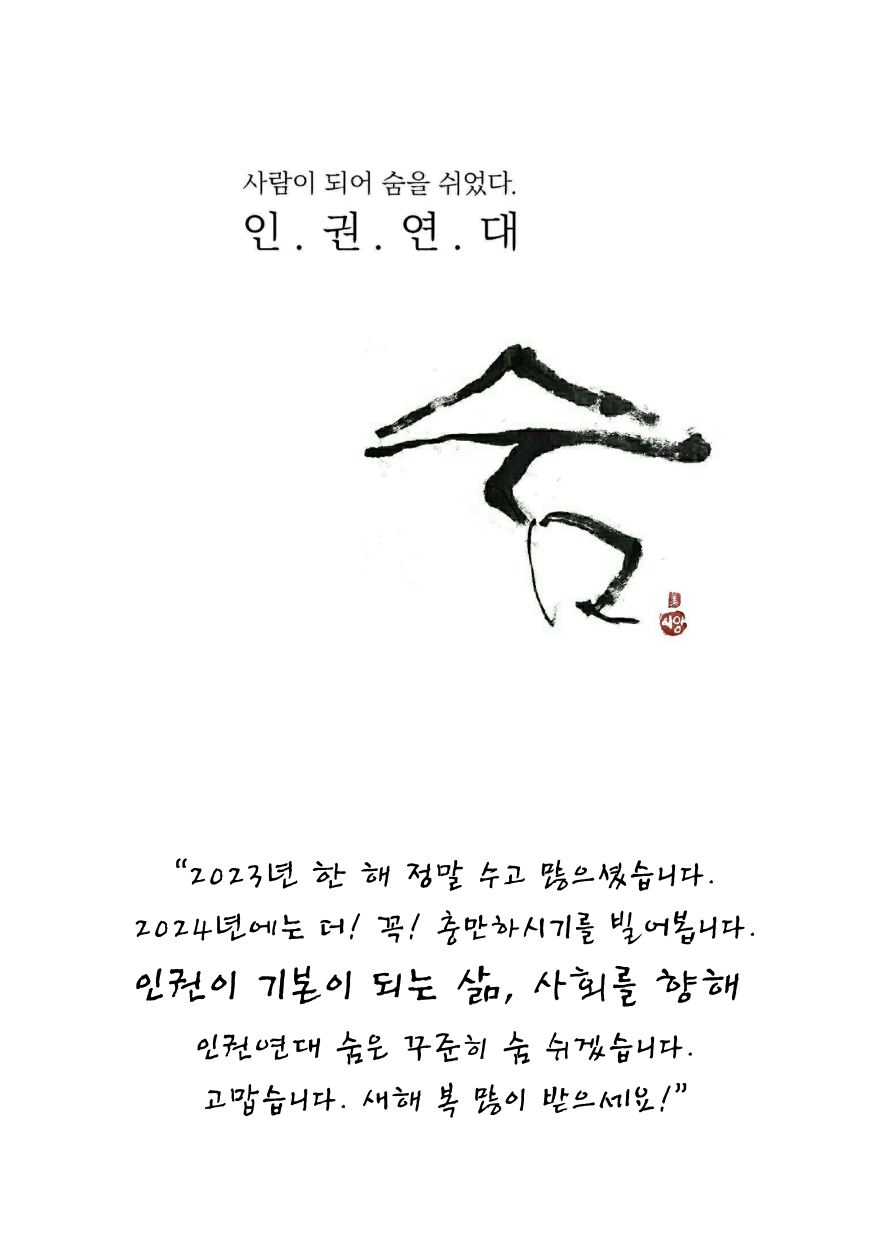 사람이 되어 숨을 쉬었다.
인 . 권 . 연 . 대
숨
시앙
“2023년 한 해 정말 수고 많으셨습니다.
2024년에는 더! 꼭! 충만하시기를 빌어봅니다.
인권이 기본이 되는 삶, 사회를 향해
인권연대 숨은 꾸준히 숨 쉬겠습니다.
고맙습니다. 새해 복 많이 받으세요!”